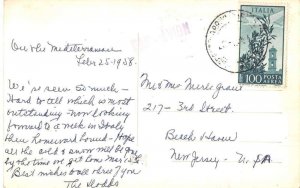 On the Mediterranean
Feb. 25-1958.
We've seen so much -
Hard to tell which is most
outstanding - now looking
forward to a week in Italy
then homeward bound - Hope
all the cold & snow will be gone
by the time we get home Mar 15
Best wishes to all three of you
The
ITALIA
L 100 POSTA AEREA
Mr & Mrs Merle Grant
217 - 3rd Street.
Beach Haven
New Jersey - U.S.A